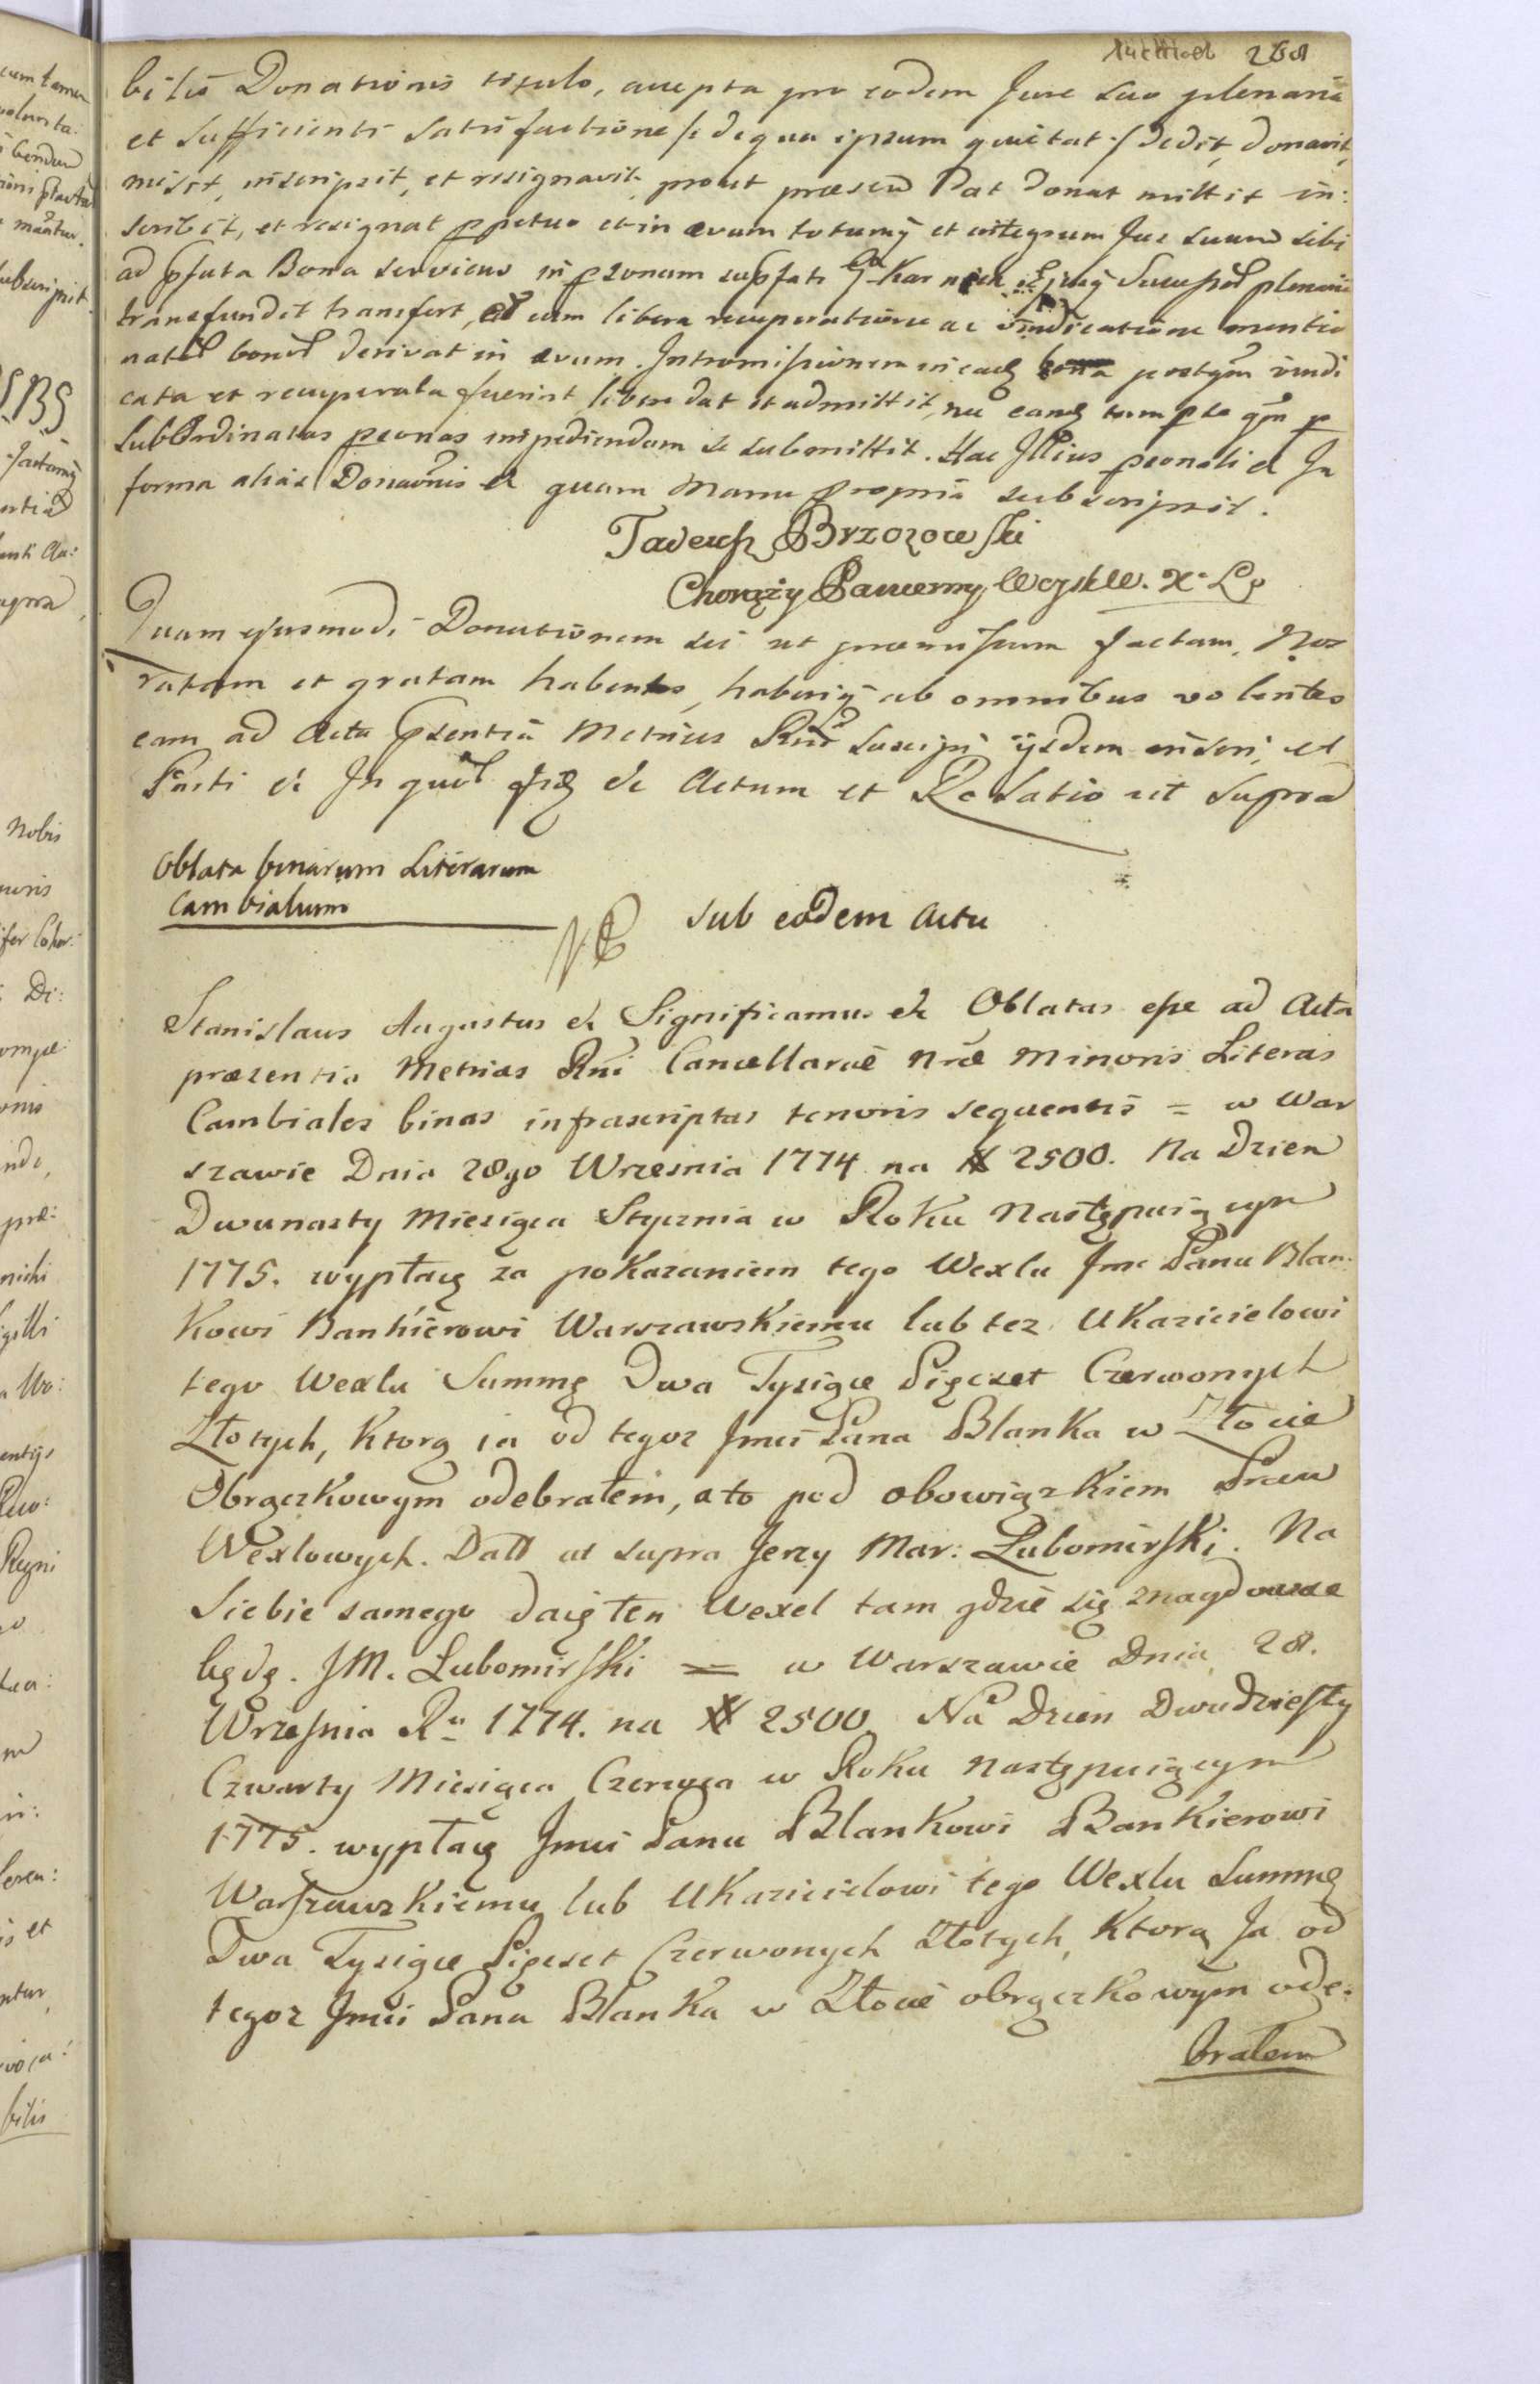 268
bilis Donationis titulo, accepta pro eodem Jure suo plenaria
et sufficienti satisfactione /: de qua ipsum quietat :/ dedit, donavit,
misit, inscripsit, et resignavit, prout præsen dat donat mittit in:
scribit, et resignat ppetuo et in ævum totumq et integrum Jus suum sibi
ad pfata Bona serviens in psonam supfati Gsi Kar ejusq Success plenarie
transfundit transfert, et cum libera recuperatione ac vindicatione mentio
nator bonor derivat in ævum. Intromissionem in eadq bona postqm vindi
cata et recuperata fuerint libere dat et admittit, nec eandq tam p se qm p
subOrdinatas psonas impediendam se submittit. Hac Illius psonali et In
forma alias Donaonis et quam Manu propria subscripsit.
Tadeusz Brzozowski
Chorąży Pancerny Woysk W. X. L.
Quam ejusmodi Donationem sei ut præmissum factam, Nos
ratam et gratam habentes, haberiq ab omnibus volentes
eam ad Acta psentia Metrices Rni suscipi ijsdem inseri, et
Parti et In quor fidq et Actum et Relatio ut supra
Oblata binarum Literarum
Cambialum
sub eodem Actu
Stanislaus Augustus et Significamus et Oblatas esse ad Acta
præsentia Metrices Rni Cancellariæ nræ Minoris Literas
Cambiales binas infrascriptas tenoris sequentis = w War
szawie Dnia 28go Wrzesnia 1774 na # 2500. Na Dzien
Dwunasty Miesiąca Stycznia w Roku Następuiącym
1775. wypłacę za pokazaniem tego Wexlu Jmc Panu Blan:
kowi Bankierowi Warszawskiemu lub tez Ukazicielowi
tego Wexlu Summę Dwa Tysiące Pięcset Czerwonych
Złotych, ktorą ia od tegoz Jmci Pana Blanka w Złocie
Obrączkowym odebrałem, a to pod obowiązkiem Praw
Wexlowych. Datt ut supra Jerzy Mar: Lubomirski. Na
Siebie samego daię ten Wexel tam gdzie się znaydowac
będę. J M. Lubomirski = w Warszawie Dnia 28.
Wrzesnia Ru 1774. na # 2500 Na Dzien Dwudziesty
Czwarty Miesiąca Czerwca w Roku następuiącym
1775. wypłacę Jmci Panu Blankowi Bankierowi
Warszawskiemu lub Ukazicielowi tego Wexlu Summę
Dwa Tysiące Pięcset Czerwonych Złotych, ktorą Ja od
tegoz Jmci Pana Blanka w Złocie obrączkowym ode:
brałem